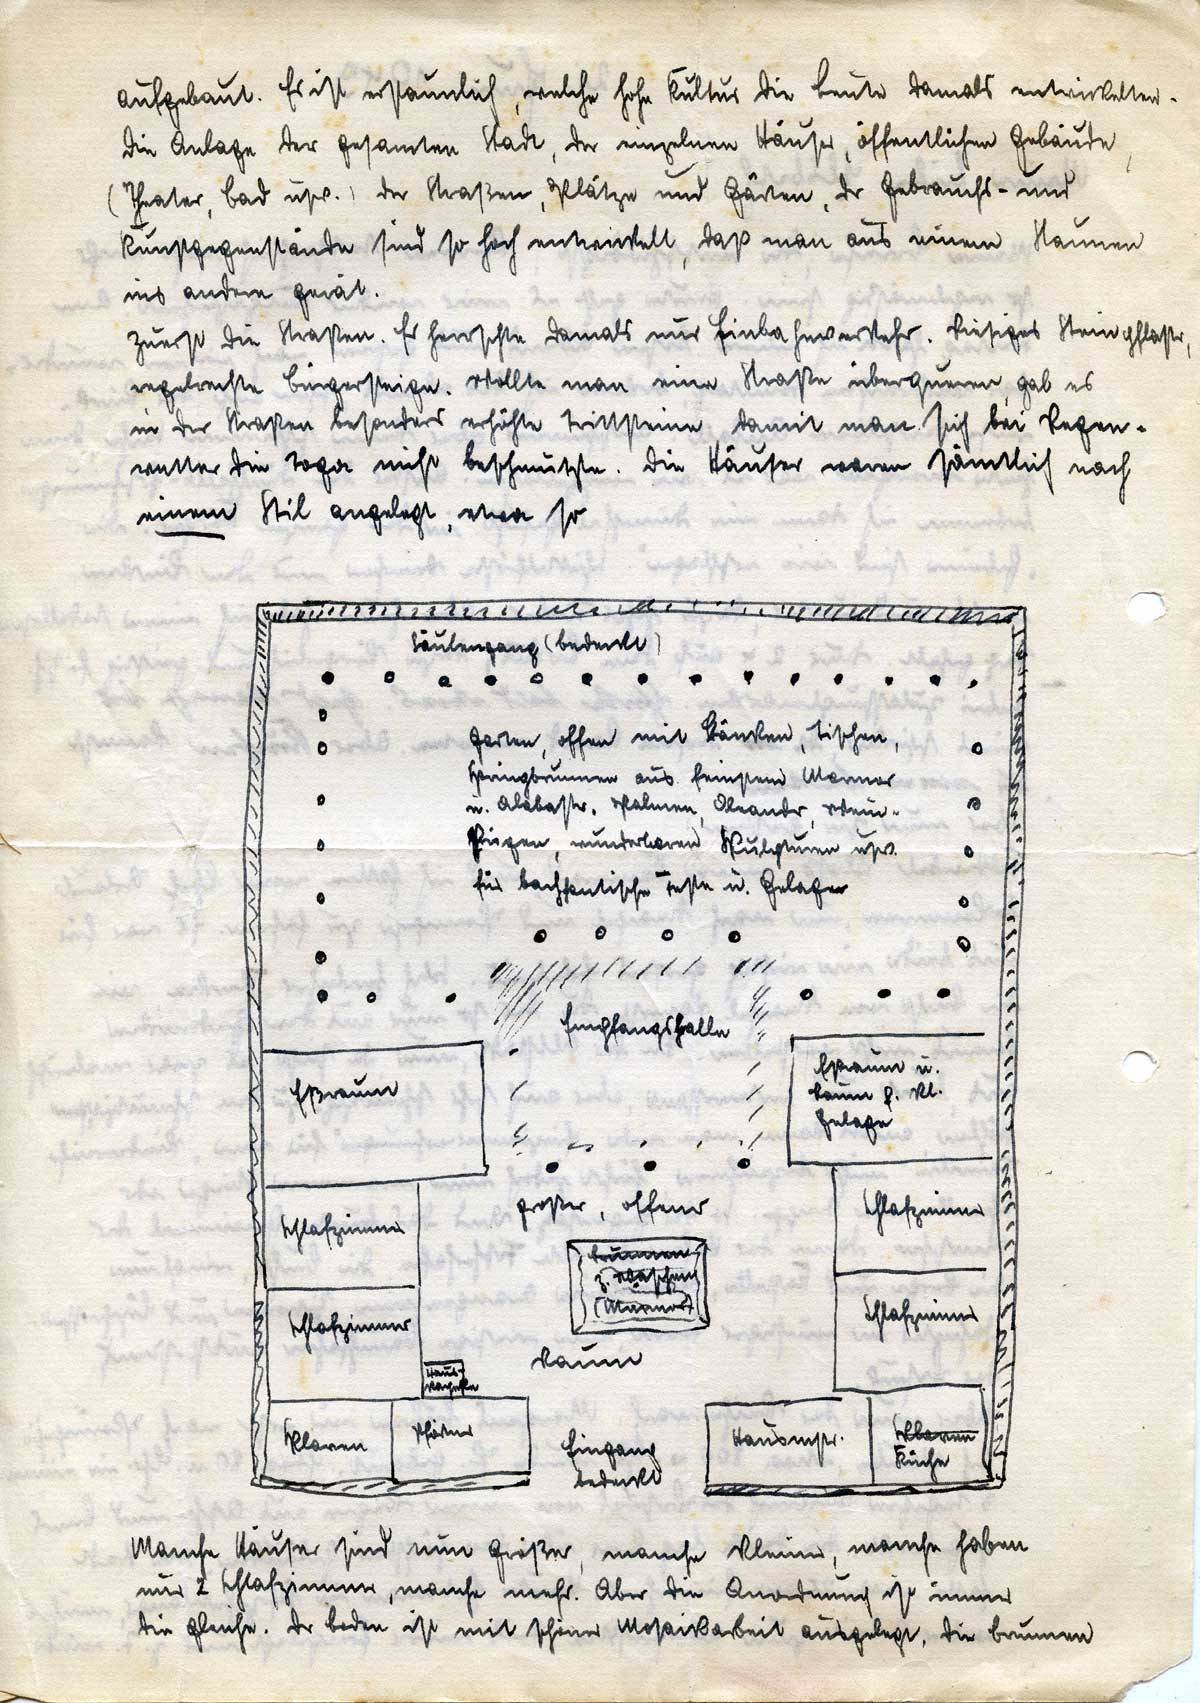 aufgebaut. Es ist erstaunlich, welche hohe Kultur die Leute damals entwickelten.
Die Anlage der gesamten Stadt, der einzelnen Häuser, öffentlichen Gebäude,
(Theater, Bad usw.) der Straßen, Plätze und Gärten, der Gebrauchs- und
Kunstgegenstände sind so hoch entwickelt, daß man aus einem Staunen
ins andere gerät.
Zuerst die Straßen. Es herrschte damals nur Einbahnverkehr. Riesiges Steinpflaster,
regelrechte Bürgersteige. Wollte man eine Straße überqueren, gab es
in der Straßen besonders erhöhte Trittsteine, damit man sich bei Regen-
wetter die Toga nicht beschmutzte. Die Häuser waren sämtlich nach
einem Stil angelegt, etwa so
Säulengang (bedeckt)
Garten, offen mit Bänken, Tischen,
Springbrunnen aus feinstem Marmor
u. Alabaster, Palmen, Oleander, Wein-
Feigen, wunderbaren Skulpturen usw.
für bachkantische Feste u. Gelage
Empfangshalle
Eßraum
Eßraum u.
Raum f. kl.
Gelage
Schlafzimmer
großer, offener
Schlafzimmer
Brunnen
z. Waschen
(Marmor)
Schlafzimmer
Schlafzimmer
Raum
Haus-
kapelle
Sklaven
Pförtner
Eingang
bedeckt
Hausmstr.
Sklaven
Küche
Manche Häuser sind nun größer, manche kleiner, manche haben
nur 2 Schlafzimmer, manche mehr. Aber die Anordnung ist immer
die gleiche. Der Boden ist mit schöner Mosaikarbeit ausgelegt, die Brunnen